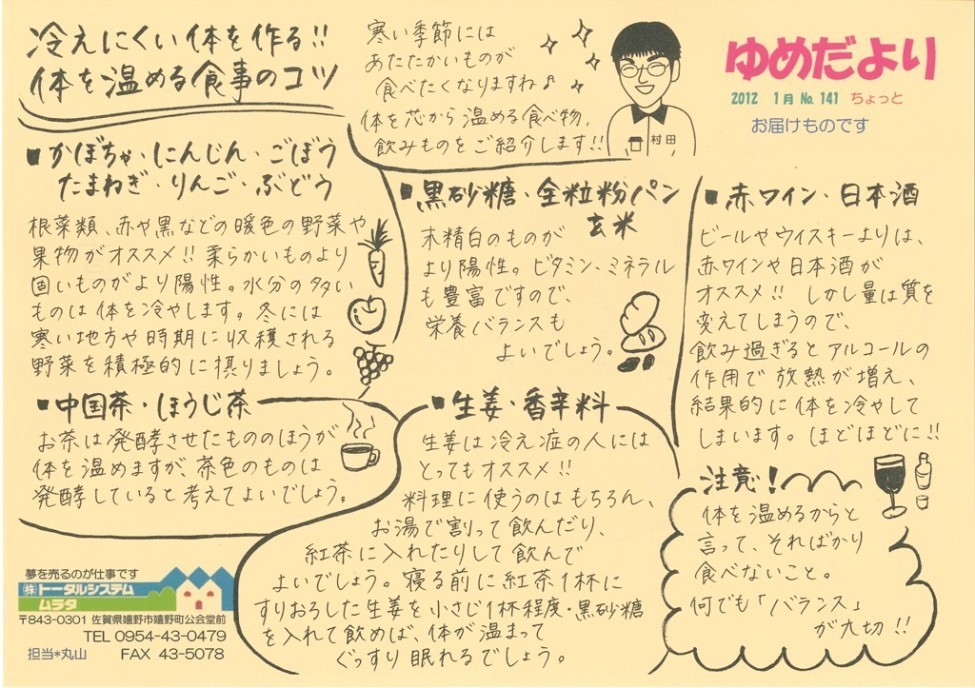 冷えにくい体を作る!!
体を温める食事のコツ
寒い季節には
あたたかいものが
食べたくなりますね♪
体を芯から温める食べ物、
飲みものをご紹介します!!
村田
ゆめだより
2012 1月 No. 141 ちょっと
お届けものです
■かぼちゃ・にんじん・ごぼう
たまねぎ・りんご・ぶどう
根菜類、赤や黒などの暖色の野菜や
果物がオススメ!! 柔らかいものより
固いものがより陽性。水分の多い
ものは体を冷やします。冬には
寒い地方や時期に収穫される
野菜を積極的に摂りましょう。
■黒砂糖・全粒粉パン
玄米
未精白のものが
より陽性。ビタミン、ミネラル
も豊富ですので、
栄養バランスも
よいでしょう。
■赤ワイン・日本酒
ビールやウイスキーよりは、
赤ワインや日本酒が
オススメ!! しかし量は質を
変えてしまうので、
飲み過ぎるとアルコールの
作用で放熱が増え、
結果的に体を冷やして
しまいます。ほどほどに!!
■中国茶・ほうじ茶
お茶は発酵させたもののほうが
体を温めますが、茶色のものは
発酵していると考えてよいでしょう。
■生姜・香辛料
生姜は冷え症の人には
とってもオススメ!!
料理に使うのはもちろん、
お湯で割って飲んだり、
紅茶に入れたりして飲んで
よいでしょう。寝る前に紅茶1杯に
すりおろした生姜を小さじ1杯程度・黒砂糖
を入れて飲めば、体が温まって
ぐっすり眠れるでしょう。
注意!
体を温めるからと
言って、そればかり
食べないこと。
何でも「バランス」
が大切!!
夢を売るのが仕事です
(株)トータルシステム
ムラタ
〒843-0301 佐賀県嬉野市嬉野町公会堂前
TEL 0954-43-0479
担当*丸山 FAX 43-5078